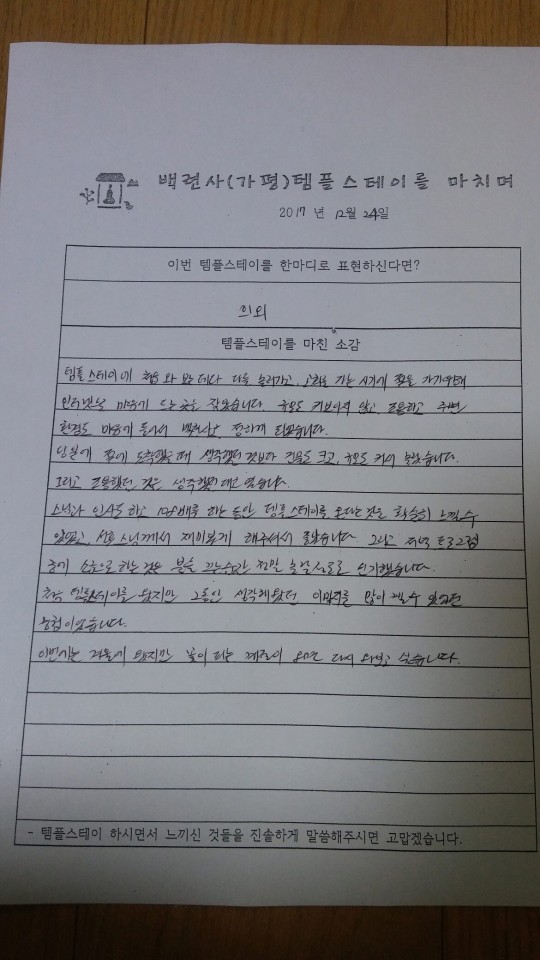 백련사(가평)템플스테이를 마치며
2017 년 12월 24일
이번 템플스테이를 한마디로 표현하신다면?
의외
템플스테이를 마친 소감
템플스테이에 처음 와 보는데다 다들 놀러가고, 시기에 절을 가기위해
인터넷을 마음에 드는 곳을 찾았습니다. 규모도 커보이지 않고 조용하고 주변
환경도 마음에 들어서 백련사로 정하게 되었습니다.
당일에 절에 도착했을 때 생각했던 것보다 건물도 크고, 규모도 커서 놀랐습니다.
그리고 조용했던 것은 생각했던 대로 였습니다.
스님과 인사도 하고 108배를 하는 동안 템플스테이를 온다는 것을 확실히 느낄수
있었고, 스님께서 재미있게 해주셔서 좋았습니다. 그리고 저녁 프로그램
중에 소등으로 하는 것은 불을 끄는순간 정말
템플스테이를 왔지만 그동안 생각해왔던 이미지를 많이 깰수 있었던
경험이었습니다.
이번에는 겨울에 왔지만 꽃이 피는 계절이 오면 다시 와보고 싶습니다.
- 템플스테이 하시면서 느끼신 것들을 진솔하게 말씀해주시면 고맙겠습니다.